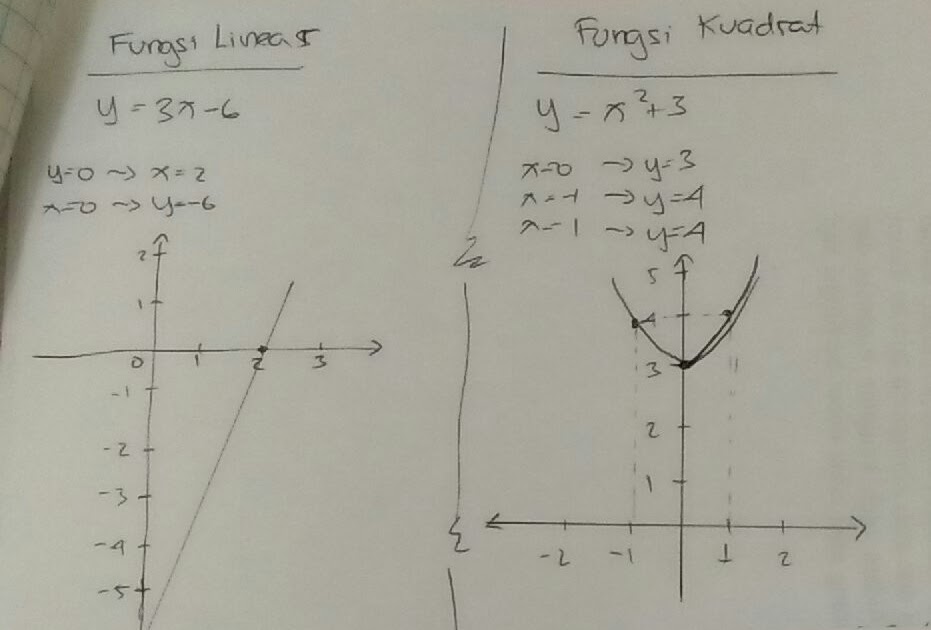 Fungsi Linear
y = 3x - 6
y=0 → x = 2
x=0 → y=-6
2
1
0 1 2 3
-1
-2
-3
-4
-5
Fungsi Kuadrat
y = x² + 3
x=0 → y=3
x=-1 → y=4
x=1 → y=4
5
4
3
2
1
-2 -1 1 2